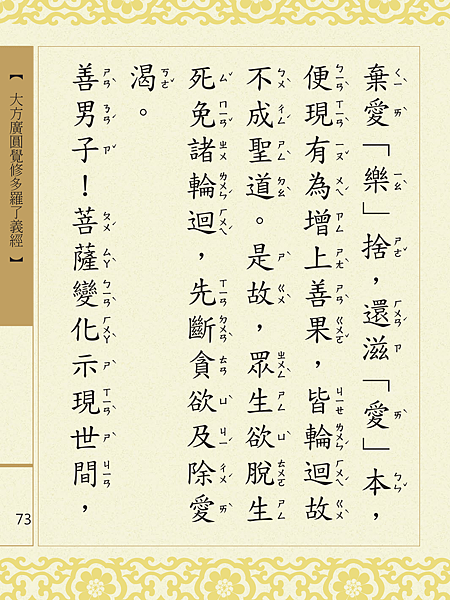 棄愛「樂」捨，還滋「愛」本，
便現有為增上善果，皆輪迴故
不成聖道。是故，眾生欲脫生
死免諸輪迴，先斷貪欲及除愛
渴。
善男子！菩薩變化示現世間，
【 大方廣圓覺修多羅了義經 】
73